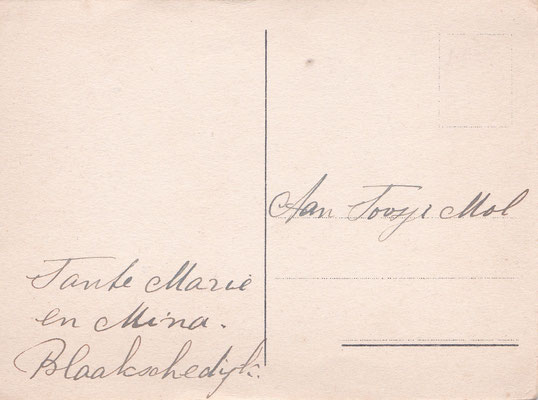 Tante Marie
en Mina.
Blaakschedijk.
Aan Toosje Mol